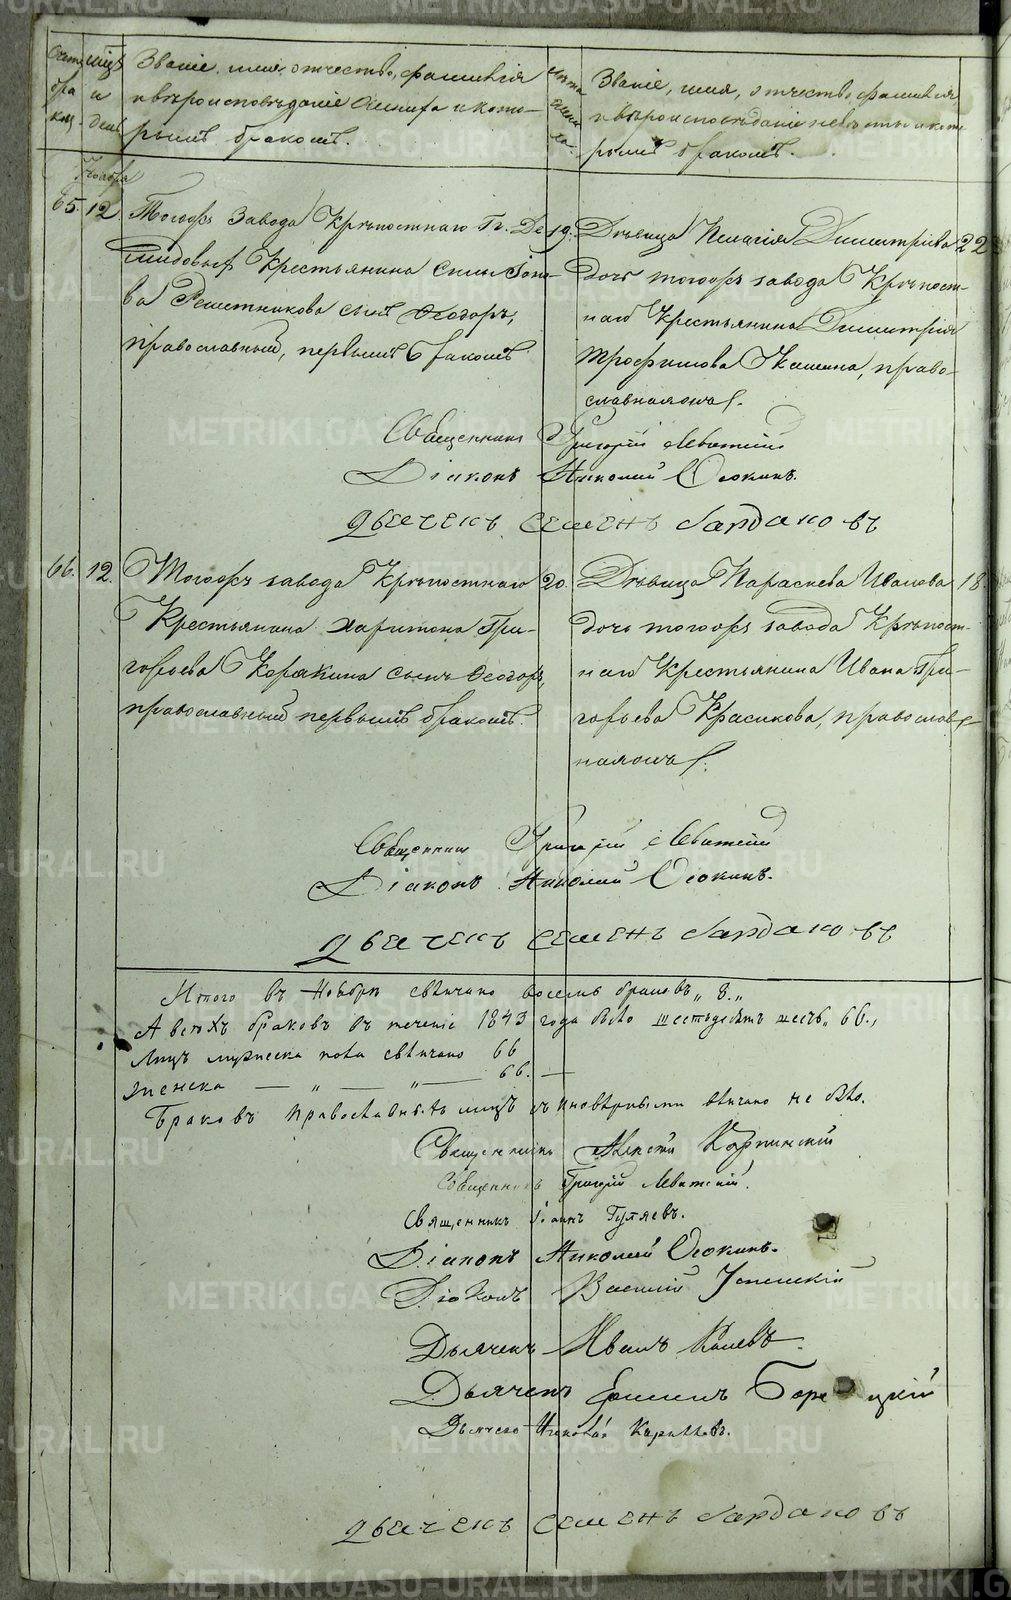 Счетъ бра ков.
мцъ и день
Званіе, имя, отчество, фамилія
и вѣроисповѣданіе жениха и кото-
рымъ бракомъ.
Лѣта жени ха.
Званіе, имя, отчество, фамилія
и вѣроисповѣданіе невѣсты и кото
рымъ бракомъ.
Ноября
65. 12 Тогожъ Завода Крѣпостнаго Гг. Де-
мидовыхъ Крестьянина
ва Решетникова сынъ Ѳеодоръ,
православный, первымъ бракомъ
19. Дѣвица Пелагія Димитріева 22
дочь тогожъ завода Крѣпост-
наго Крестьянина Димитрія
Трофимова Кашина, право-
славная
Священникъ Григорій Левитскій
Діаконъ Николай Осокинъ.
Дьячекъ Семенъ Сардаковъ
66. 12. Тогожъ завода Крѣпостнаго
Крестьянина Харитона Гри-
горьева Корякина сынъ Ѳеодоръ,
православный первымъ бракомъ.
20. Дѣвица Параскева Иванова 18.
дочь тогожъ завода Крѣпост-
наго Крестьянина Ивана Гри-
горьева Красикова, православ-
ная
Священникъ Григорій Левитскій
Діаконъ Николай Осокинъ.
Дьячекъ Семенъ Сардаковъ
Итого въ Ноябрѣ свѣнчано восемь браковъ „8.„
А всѣхъ браковъ въ теченіе 1843 года было шестьдесятъ шесть„ 66.,
Лицъ мужеска пола свѣнчано 66
женска — „ — „ — 66. —
Браковъ православныхъ лицъ съ иновѣрными вѣнчано не было.
Священникъ Алексій Карпинскій
Священникъ Григорій Левитскій.
Священникъ Іоаннъ Гуляевъ.
Діаконъ Николай Осокинъ.
Діаконъ Василій Успенскій
Дьячекъ Иванъ
Дьячекъ
Дьячекъ Николай
Дьячекъ Семенъ Сардаковъ
METRIKI.GASO-URAL.RU